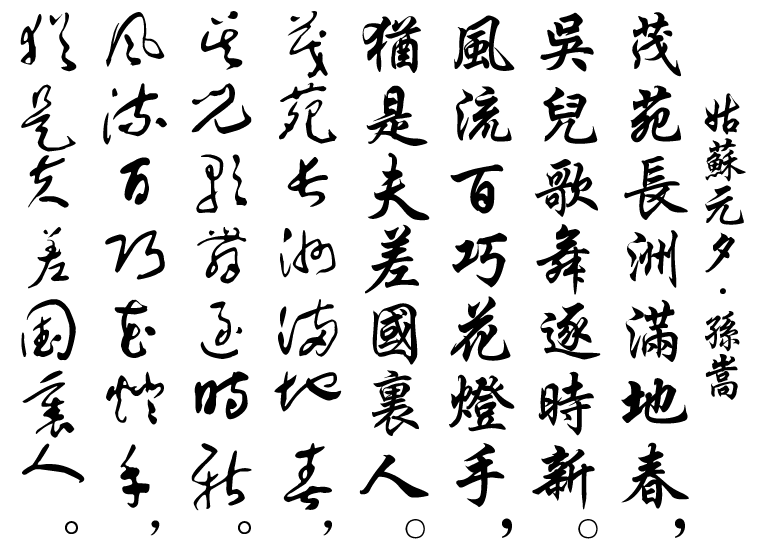 姑蘇元夕·孫嵩
茂苑長洲滿地春，
吳兒歌舞逐時新。
風流百巧花燈手，
猶是夫差國裏人。
茂苑長洲滿地春，
吳兒歌舞逐時新。
風流百巧花燈手，
猶是夫差國裏人。